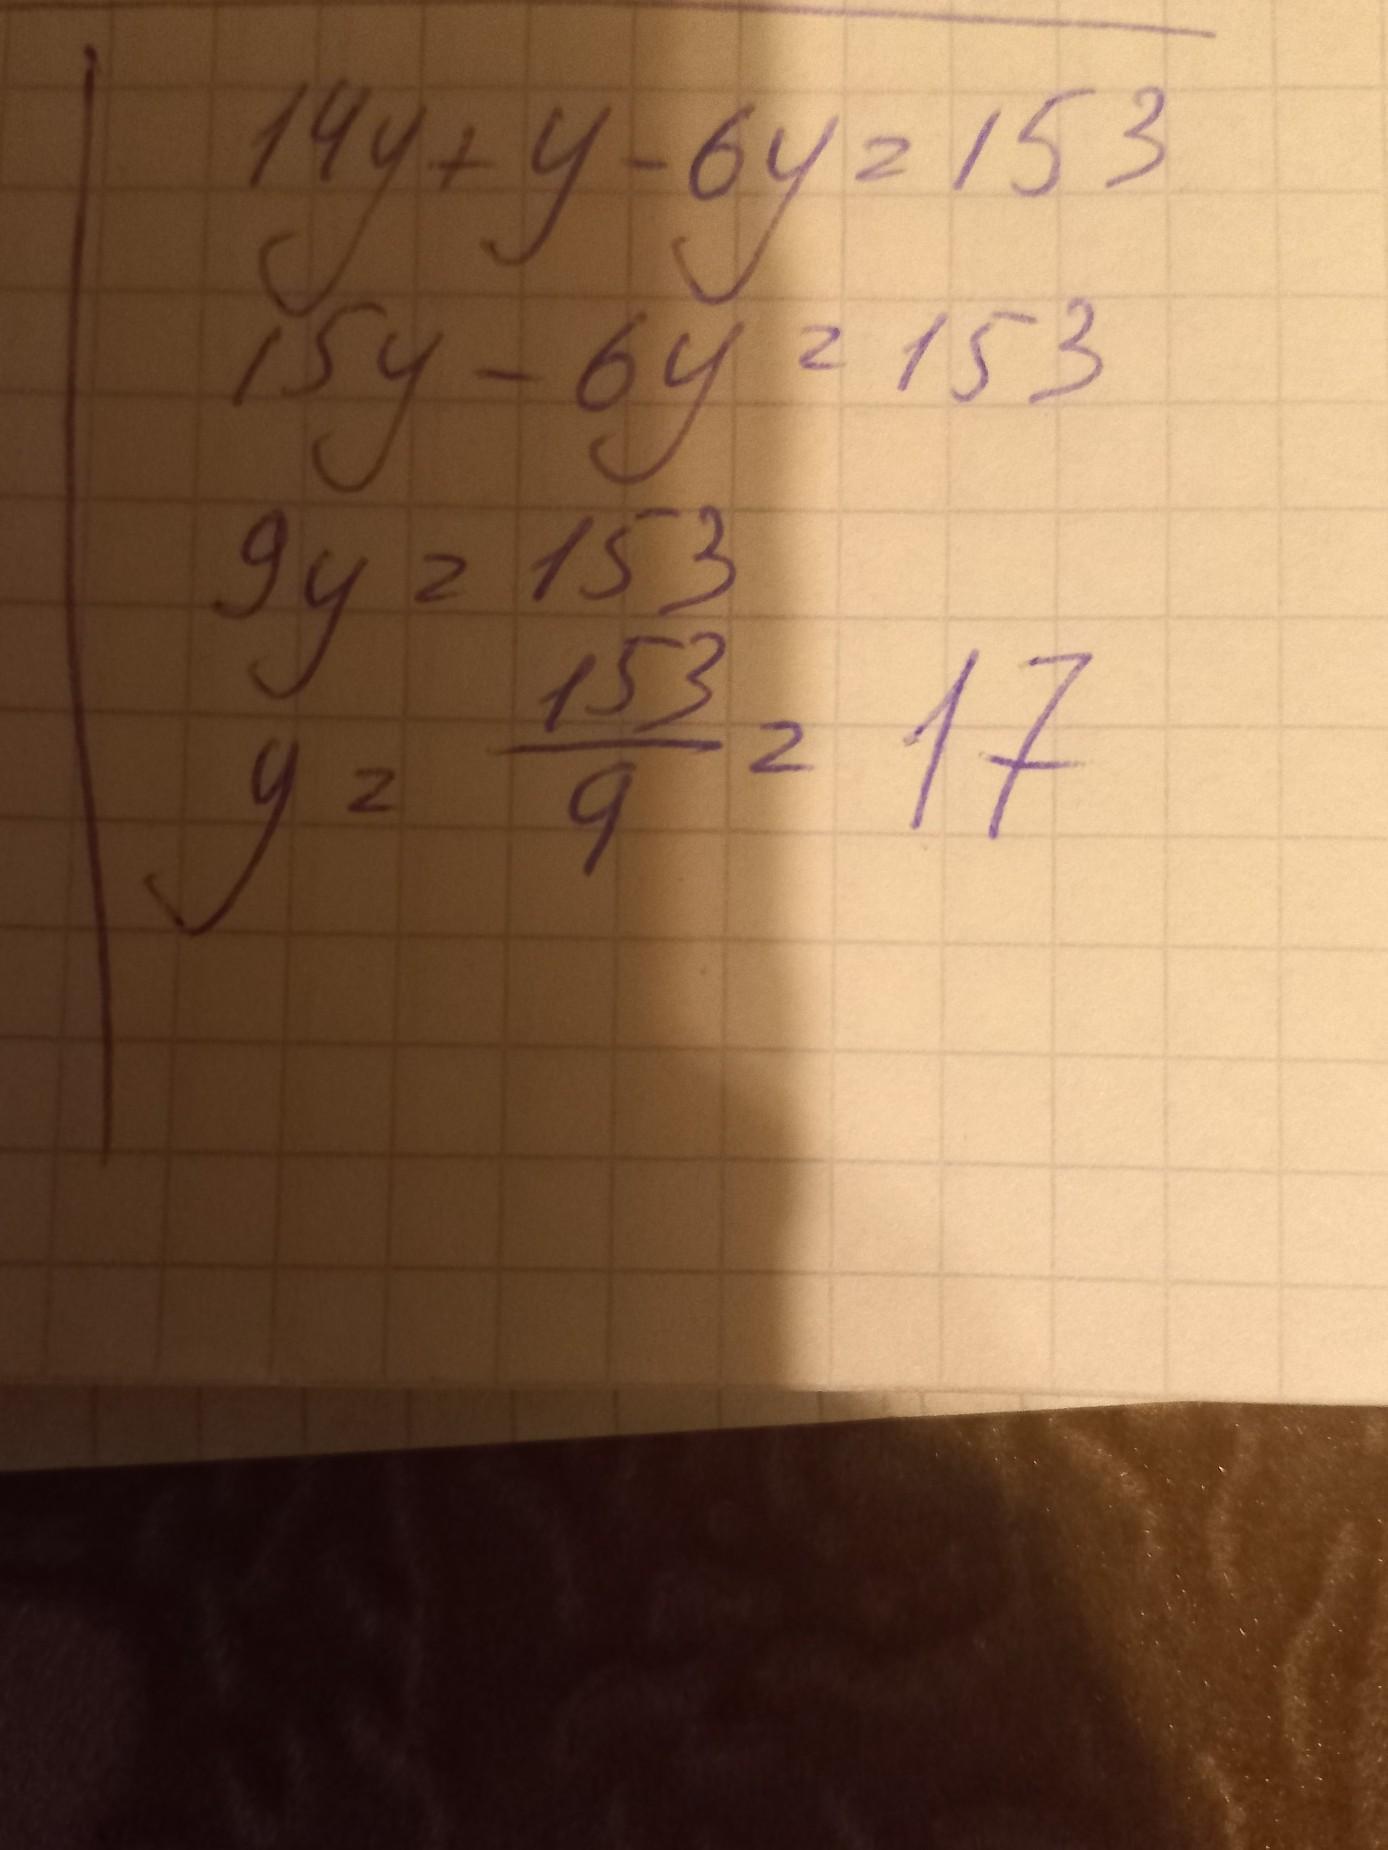 14y + y - 6y = 153
15y - 6y = 153
9y = 153
y = 153/9 = 17